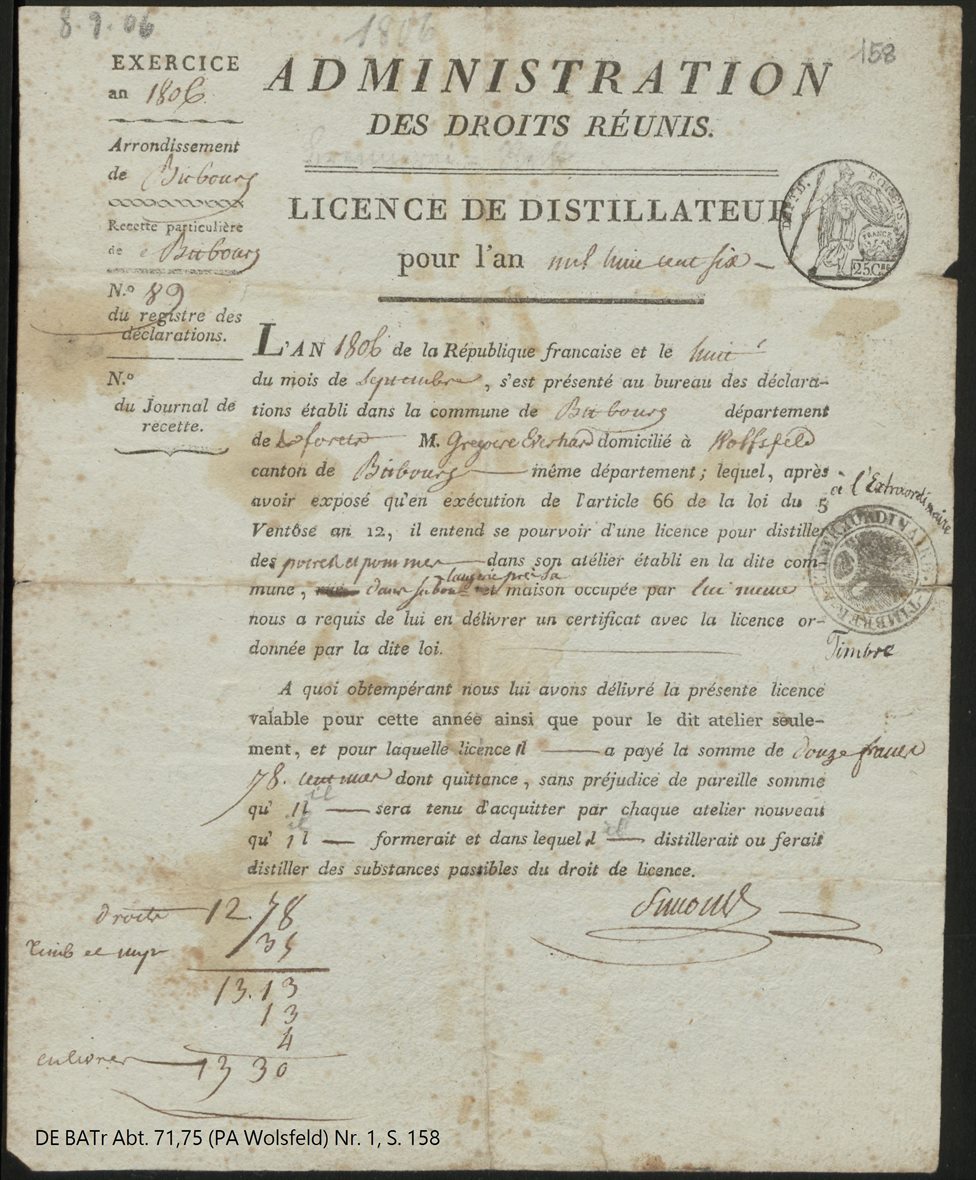 8.9.06
1806
158
EXERCICE
an 1806
Arrondissement
de Bitbourg
Recette particulière
de Bitbourg
N.º 89
du registre des
déclarations.
N.º
du Journal de
recette.
ADMINISTRATION
DES DROITS RÉUNIS.
LICENCE DE DISTILLATEUR
pour l'an mil huit cent six
FORETS.
FRANCE
25 C.
L'AN 1806 de la République francaise et le huit
du mois de Septembre, s'est présenté au bureau des déclara-
tions établi dans la commune de Bitbourg département
de forets M. Gregoire Everhard domicilié à Wolfsfeld
canton de Bitbourg même département; lequel, après
avoir exposé qu'en exécution de l'article 66 de la loi du 5
Ventôse an 12, il entend se pourvoir d'une licence pour distiller
des poires et pommes dans son atélier établi en la dite com-
mune, dans sa maison occupée par lui meme
nous a requis de lui en délivrer un certificat avec la licence or-
donnée par la dite loi.
à l'Extraordinaire
TIMBRE A L'EXTRAORDINAIRE
Timbre
A quoi obtempérant nous lui avons délivré la présente licence
valable pour cette année ainsi que pour le dit atelier seule-
ment, et pour laquelle licence il a payé la somme de douze francs
78. centimes dont quittance, sans préjudice de pareille somme
qu' il sera tenu d'acquitter par chaque atelier nouveau
qu' il formerait et dans lequel il distillerait ou ferait
distiller des substances passibles du droit de licence.
Simonis
droits 12.78
timb et impr 35
13.13
13
4
13 30
DE BATr Abt. 71,75 (PA Wolsfeld) Nr. 1, S. 158